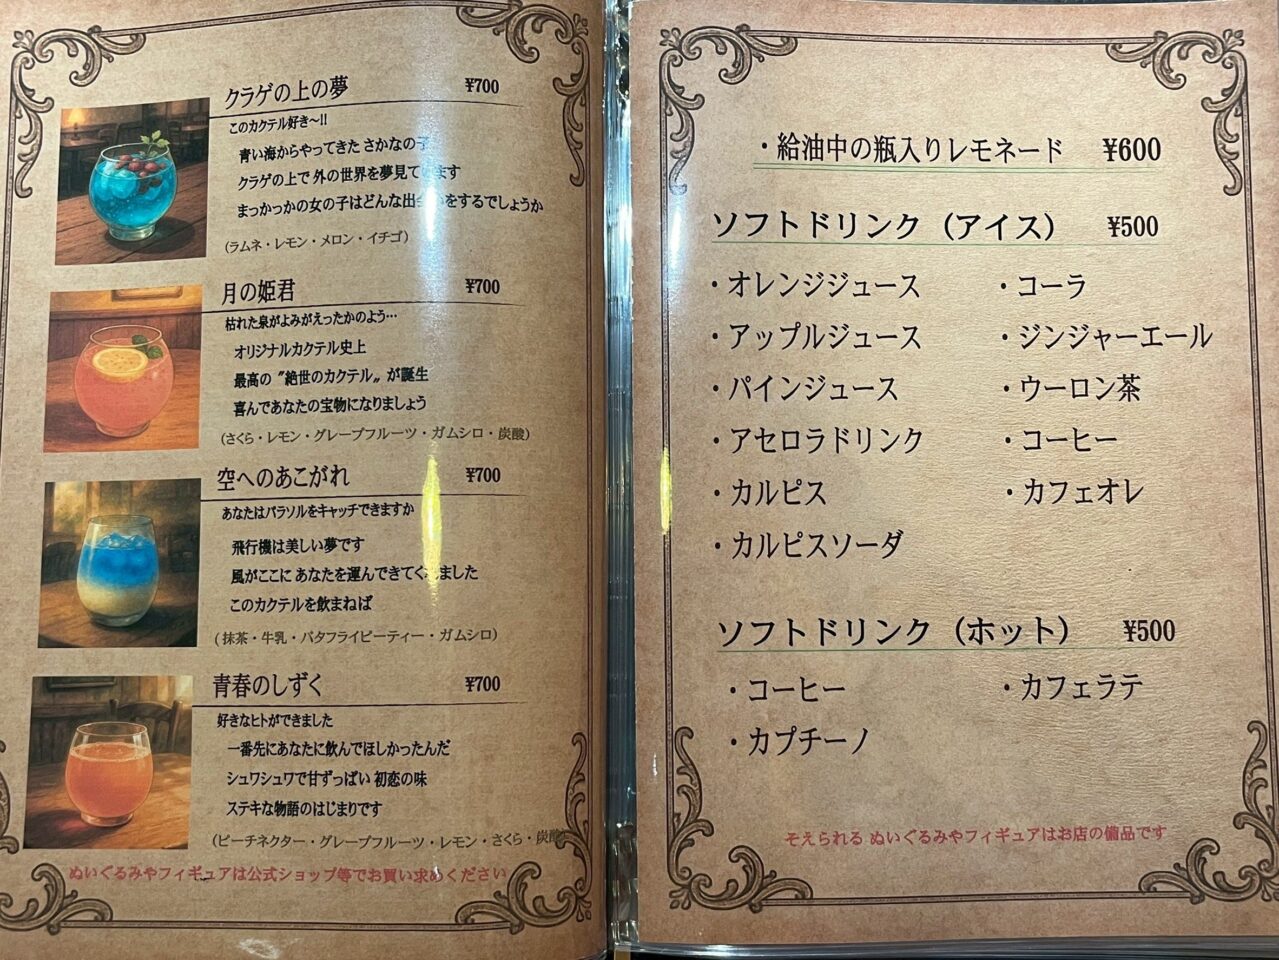 クラゲの上の夢 ¥700
このカクテル好き～!!
青い海からやってきた さかなの子
クラゲの上で 外の世界を夢見ています
まっかっかの女の子はどんな出会いをするでしょうか
(ラムネ・レモン・メロン・イチゴ)
月の姫君 ¥700
枯れた泉がよみがえったかのよう…
オリジナルカクテル史上
最高の〝絶世のカクテル〟が誕生
喜んであなたの宝物になりましょう
(さくら・レモン・グレープフルーツ・ガムシロ・炭酸)
空へのあこがれ ¥700
あなたはパラソルをキャッチできますか
飛行機は美しい夢です
風がここに あなたを運んできてくれました
このカクテルを飲まねば
(抹茶・牛乳・バタフライピーティー・ガムシロ)
青春のしずく ¥700
好きなヒトができました
一番先にあなたに飲んでほしかったんだ
シュワシュワで甘ずっぱい 初恋の味
ステキな物語のはじまりです
(ピーチネクター・グレープフルーツ・レモン・さくら・炭酸)
ぬいぐるみやフィギュアは公式ショップ等でお買い求めください
・給油中の瓶入りレモネード ¥600
ソフトドリンク（アイス） ¥500
・オレンジジュース ・コーラ
・アップルジュース ・ジンジャーエール
・パインジュース ・ウーロン茶
・アセロラドリンク ・コーヒー
・カルピス ・カフェオレ
・カルピスソーダ
ソフトドリンク（ホット） ¥500
・コーヒー ・カフェラテ
・カプチーノ
そえられる ぬいぐるみやフィギュアはお店の備品です